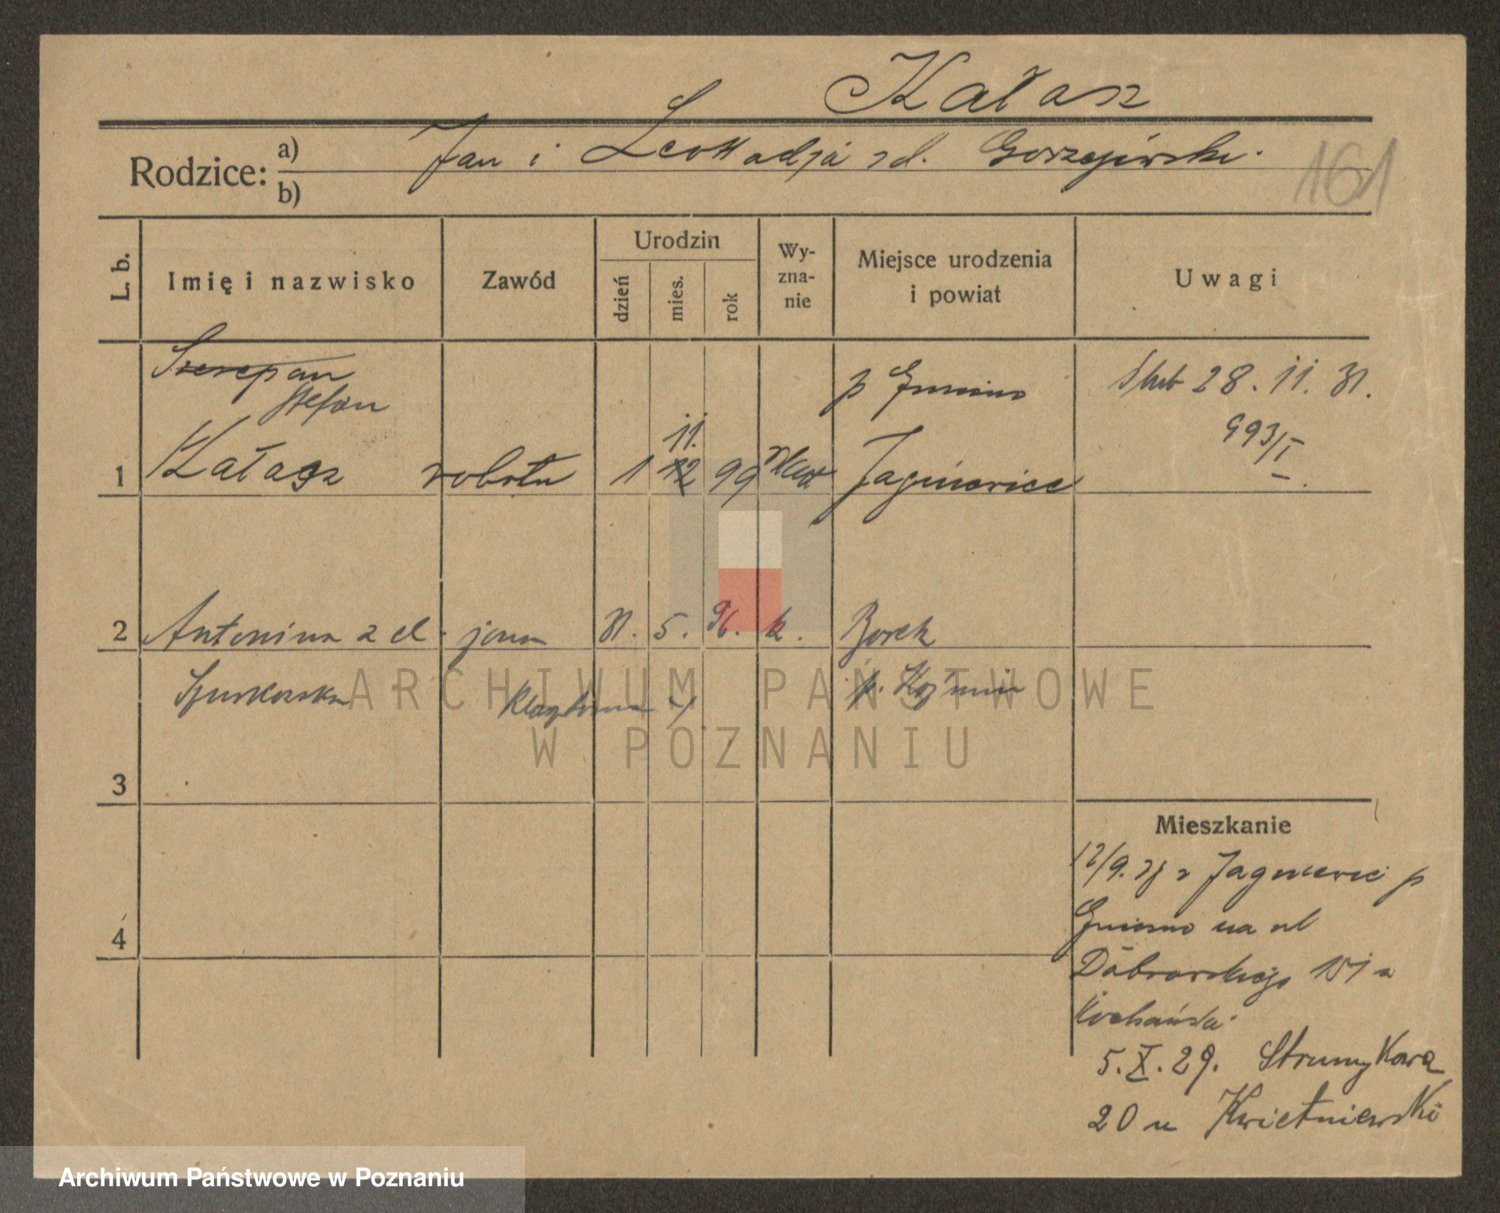 Kałasz
Rodzice: a) Jan i Leokadja zd. Gorzejewski.
b)
161
L. b.
Imię i nazwisko
Zawód
Urodzin
dzień
mies.
rok
Wy-
zna-
nie
Miejsce urodzenia
i powiat
Uwagi
Szczepan
Stefan
p Gniezno
Ślub 28.11.31.
993/I
11.
1 Kałasz robotn 1 12 99 Jaguniewice
2 Antonina z d. żona 31. 5. 96. k. Borek
Szurkowska
p. Koźmin
ARCHIWUM PAŃSTWOWE
W POZNANIU
3
Mieszkanie
12/9. z Jaguniewic p
4
Gniezno na ul
Dąbrowskiego 151 u
Kochański
5.X.29. Strumykowa
20 u Kwietniewski
Archiwum Państwowe w Poznaniu